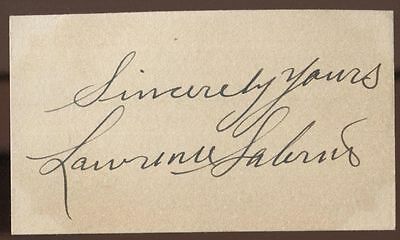 Sincerely Yours
Lawrence Salerno